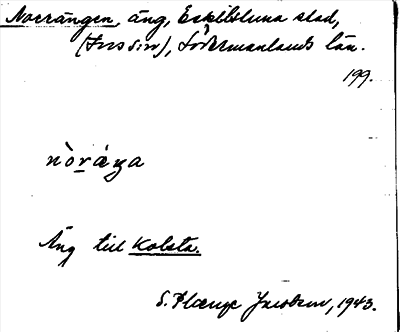 Norrängen, äng, Eskilstuna stad,
(Fors sn), Södermanlands län.
199.
Äng till Kolsta.
S. Jacobson, 1943.